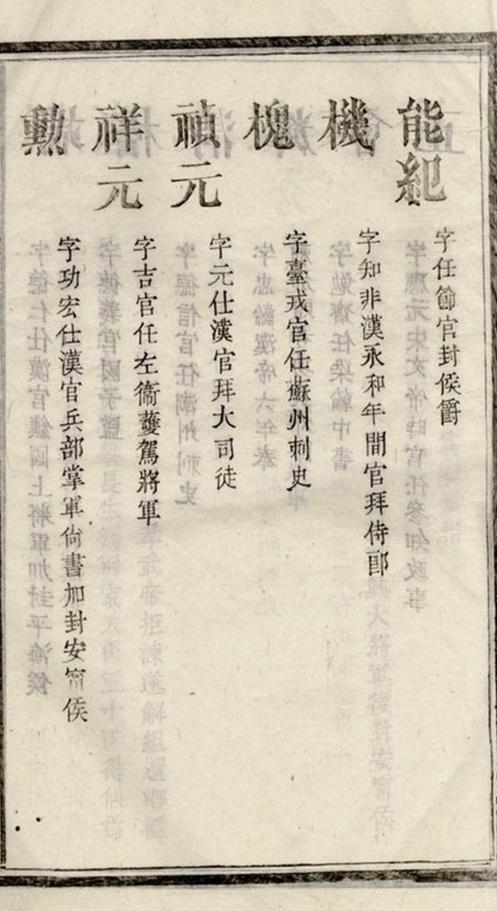 能紀
字任節官封侯爵
機
字知非漢永和年間官拜侍郎
槐
字臺戎官任蘇州刺史
禎元
字元仕漢官拜大司徒
祥元
字吉官任左衞護駕將軍
勲
字功宏仕漢官兵部掌軍尙書加封安甯侯